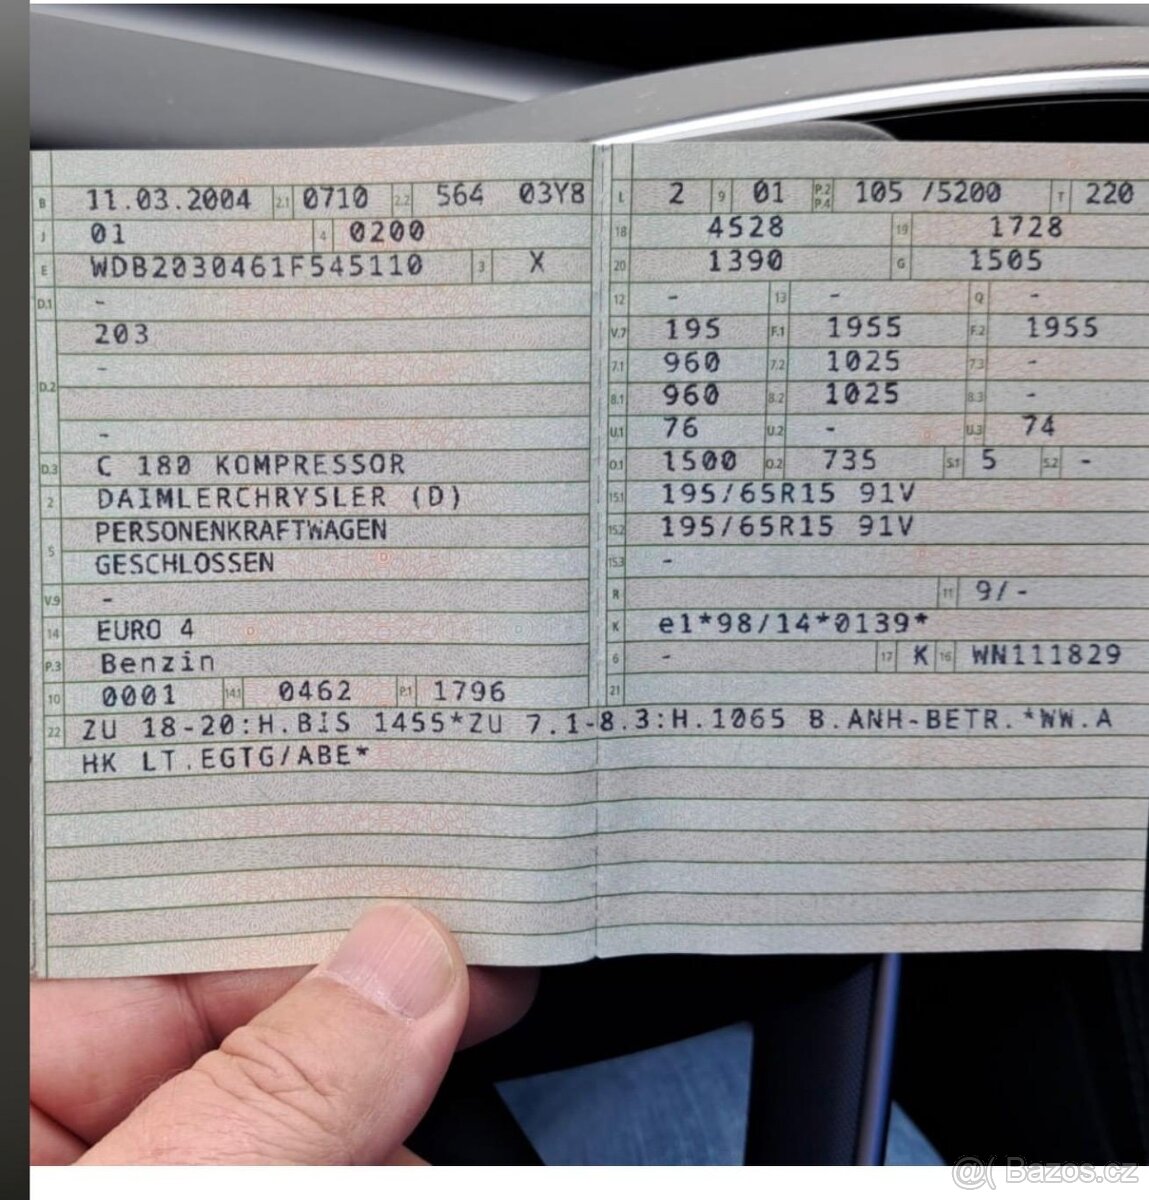 B 11.03.2004 2.1 0710 2.2 564 03Y8
J 01 4 0200
E WDB2030461F545110 3 X
D.1 -
203
-
D.2
-
D.3 C 180 KOMPRESSOR
2 DAIMLERCHRYSLER (D)
PERSONENKRAFTWAGEN
5
GESCHLOSSEN
V.9 -
14 EURO 4
P.3 Benzin
10 0001 14.1 0462 P.1 1796
L 2 9 01 P.2 P.4 105 /5200 T 220
18 4528 19 1728
20 1390 G 1505
12 - 13 - Q -
V.7 195 F.1 1955 F.2 1955
7.1 960 7.2 1025 7.3 -
8.1 960 8.2 1025 8.3 -
U.1 76 U.2 - U.3 74
O.1 1500 O.2 735 S.1 5 S.2 -
15.1 195/65R15 91V
15.2 195/65R15 91V
15.3 -
R 11 9/-
K e1*98/14*0139*
6 - 17 K 16 WN111829
21
22 ZU 18-20:H.BIS 1455*ZU 7.1-8.3:H.1065 B.ANH-BETR.*WW.A
HK LT.EGTG/ABE*
@( Bazos.cz